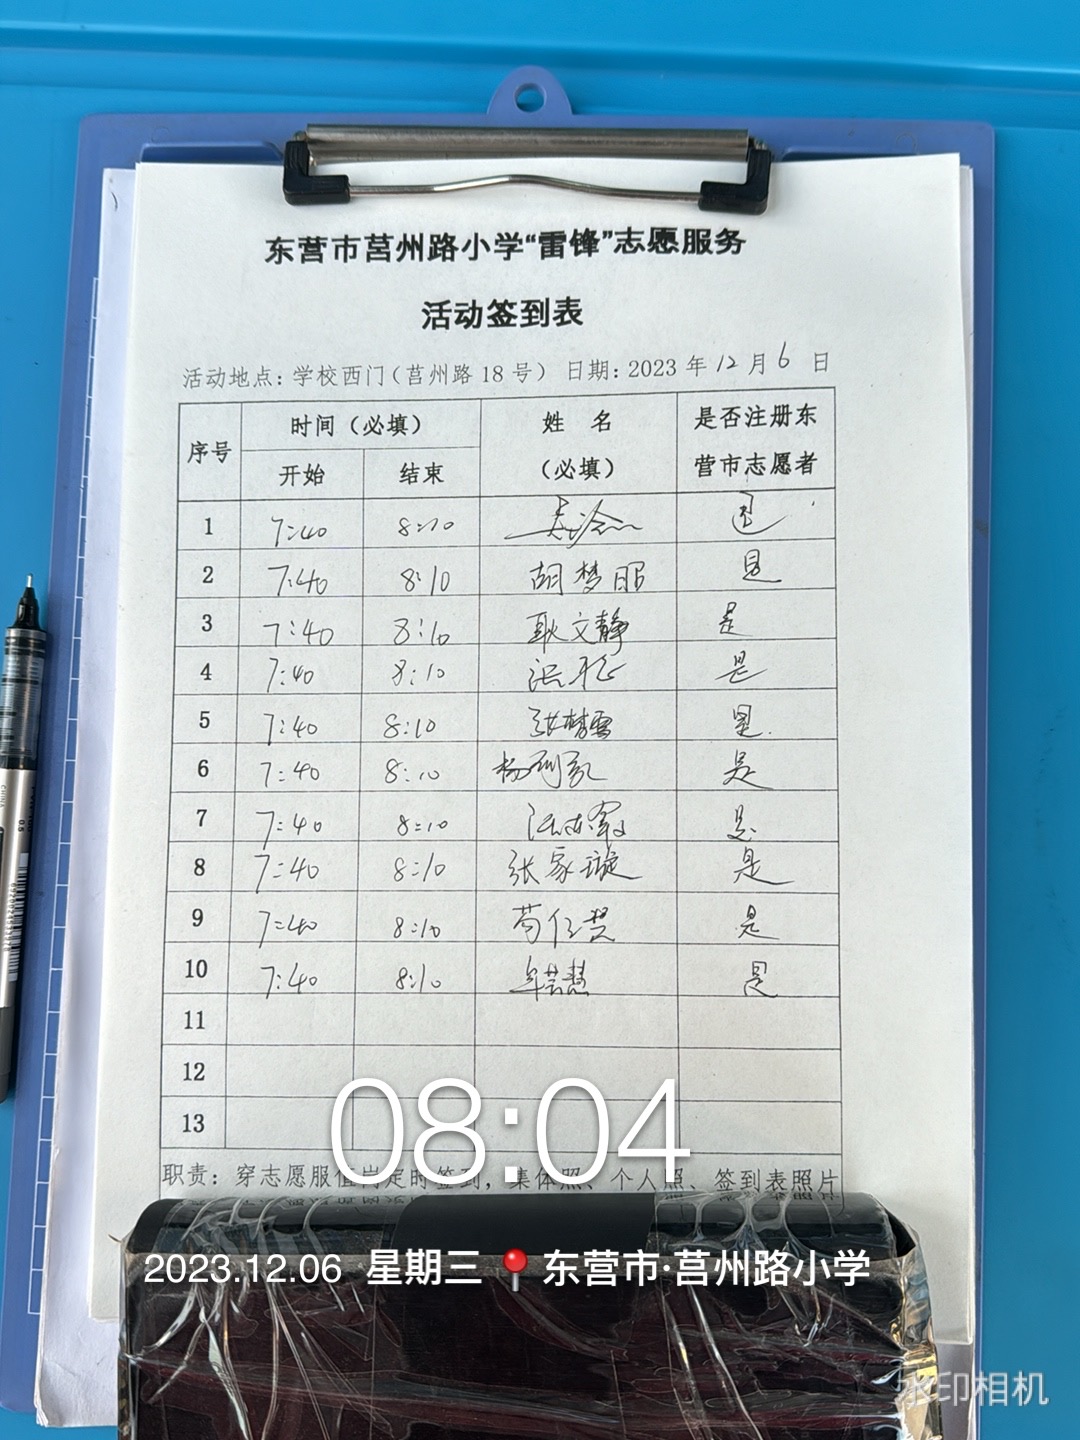 东营市莒州路小学“雷锋”志愿服务
活动签到表
活动地点：学校西门（莒州路 18 号） 日期：2023 年 12 月 6 日
序号 时间（必填） 姓 名 是否注册东
开始 结束 （必填） 营市志愿者
1 7:40 8:10 是
2 7:40 8:10 胡梦昭 是
3 7:40 8:10 耿文静 是
4 7:40 8:10 是
5 7:40 8:10 张梦雪 是
6 7:40 8:10 杨 是
7 7:40 8:10 是
8 7:40 8:10 张家璇 是
9 7:40 8:10 是
10 7:40 8:10 牟芸慧 是
11
12
13
08:04
职责：穿志愿服值岗定时签到，集体照、个人照、签到表照片
2023.12.06 星期三 东营市·莒州路小学
水印相机